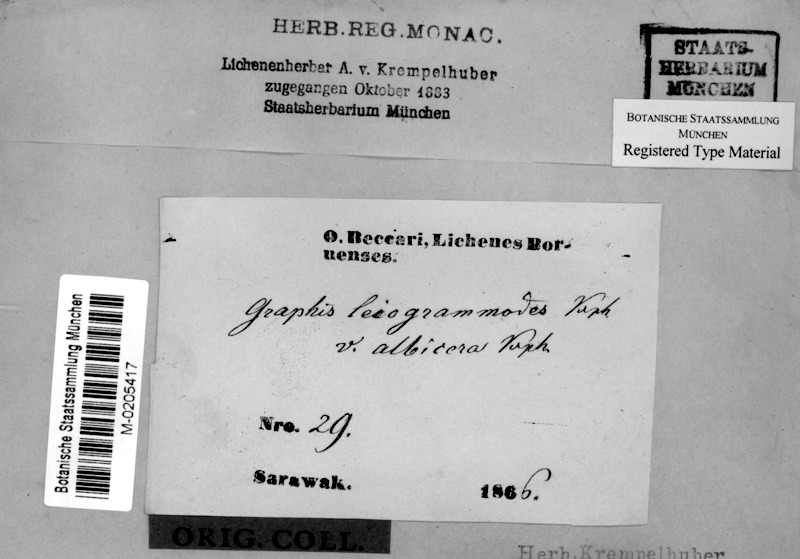 HERB. REG. MONAC.
Lichenenherbar A. v. Krempelhuber
zugegangen Oktober 1883
Staatsherbarium München
STAATS-
HERBARIUM
MÜNCHEN
BOTANISCHE STAATSSAMMLUNG
MÜNCHEN
Registered Type Material
O. Beccari, Lichenes Bor-
nenses.
Graphis leiogrammodes Krph
v. albicera Krph
Nro. 29.
Sarawak. 1866.
Botanische Staatssammlung München
M-0205417
ORIG. COLL.
Herb. Krempelhuber